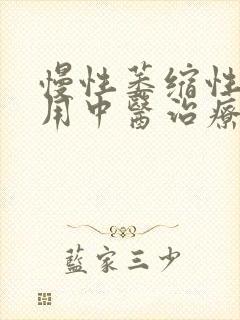 慢性萎缩性
用中醫治療
藍家三少